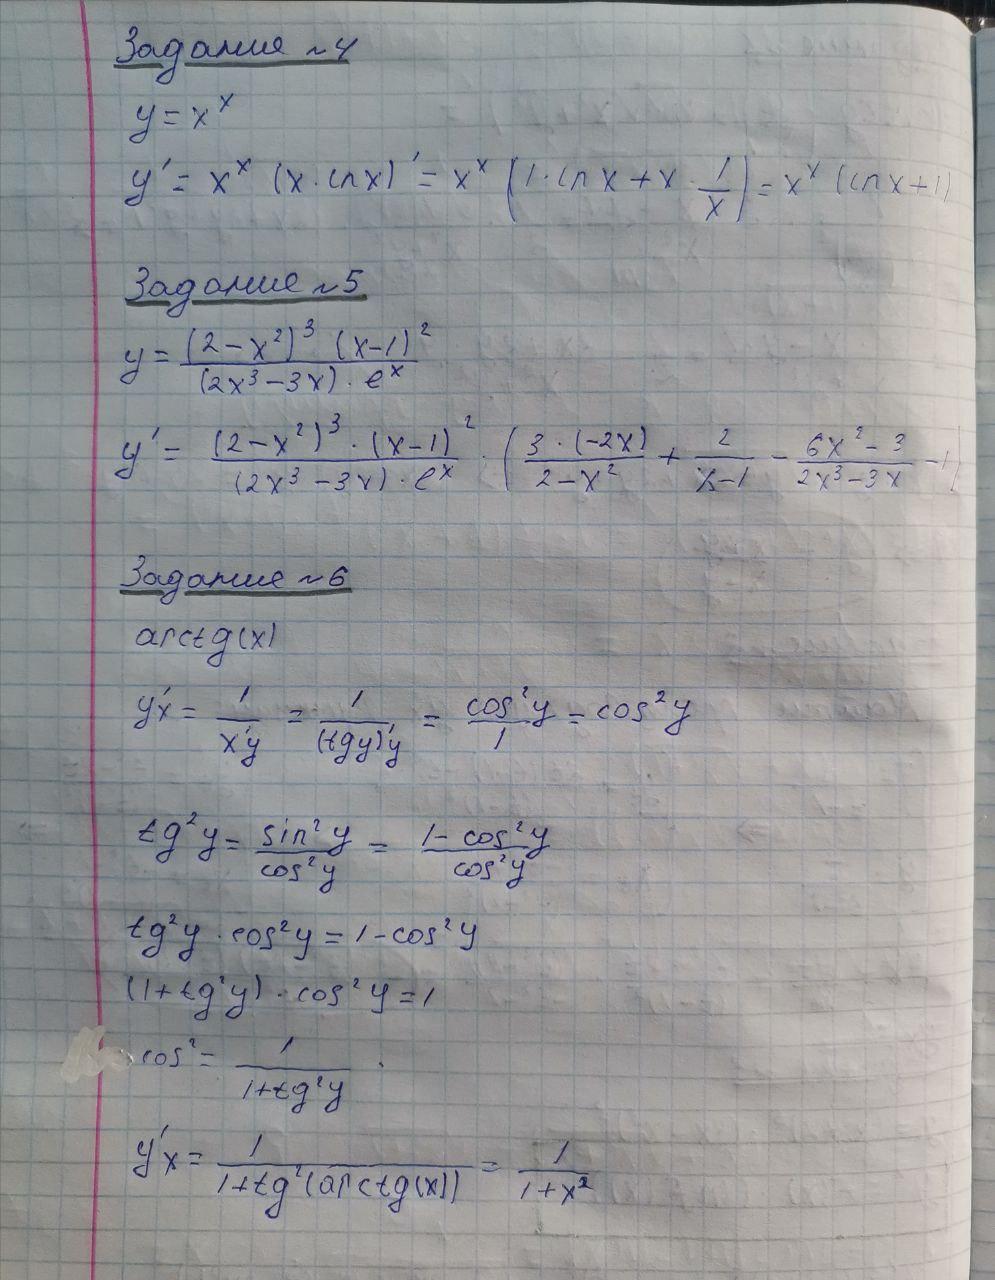 Задание №4
y = x^x
y' = x^x (x·ln x)' = x^x (1·ln x + x · 1/x) = x^x (ln x + 1)
Задание №5
y = ((2-x²)³ (x-1)²)/((2x³-3x)·e^x)
y' = ((2-x²)³·(x-1)²)/((2x³-3x)·e^x) · ((3·(-2x))/(2-x²) + 2/(x-1) - (6x²-3)/(2x³-3x) - 1)
Задание №6
arctg(x)
y'x = 1/x'y = 1/(tgy)'y = cos²y/1 = cos²y
tg²y = sin²y/cos²y = (1-cos²y)/cos²y
tg²y · cos²y = 1-cos²y
(1+tg²y) · cos²y = 1
cos² = 1/(1+tg²y) .
y'x = 1/(1+tg²(arctg(x))) = 1/(1+x²)